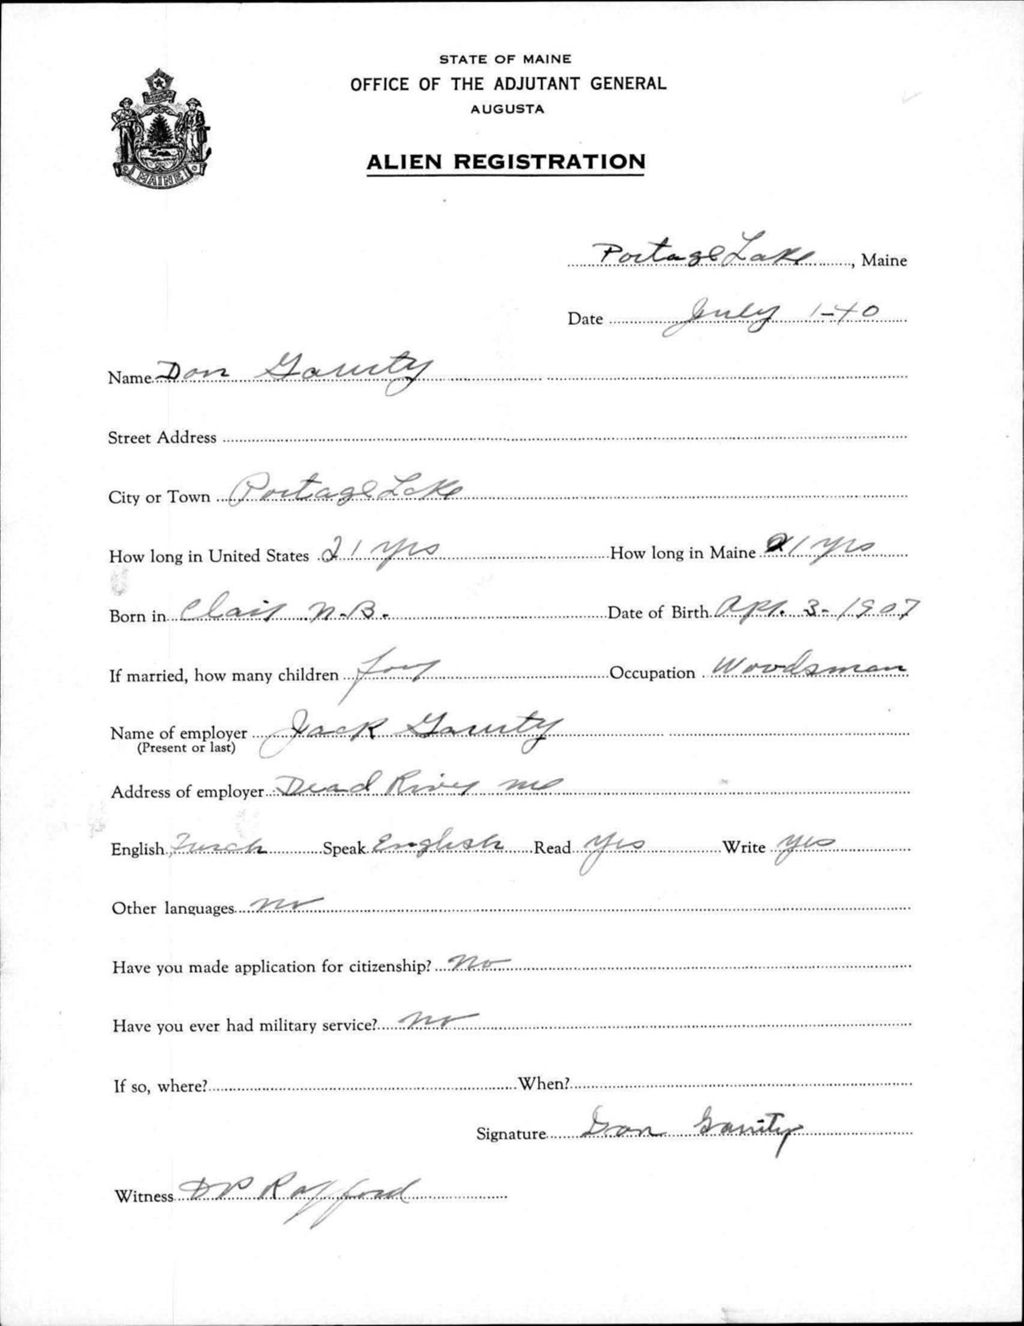 STATE OF MAINE
OFFICE OF THE ADJUTANT GENERAL
AUGUSTA
ALIEN REGISTRATION
MAINE
Portage Lake, Maine
Date July 1-40
Name Don Garrity
Street Address
City or Town Portage Lake
How long in United States 21 yrs How long in Maine 21 yrs
Born in Clair N.B. Date of Birth Apr. 3-1907
If married, how many children four Occupation Woodsman
Name of employer Jack Garrity
(Present or last)
Address of employer Dead River Me
English French Speak English Read Yes Write Yes
Other languages no
Have you made application for citizenship? No
Have you ever had military service? No
If so, where? When?
Signature Don Garrity
Witness DP Rafford